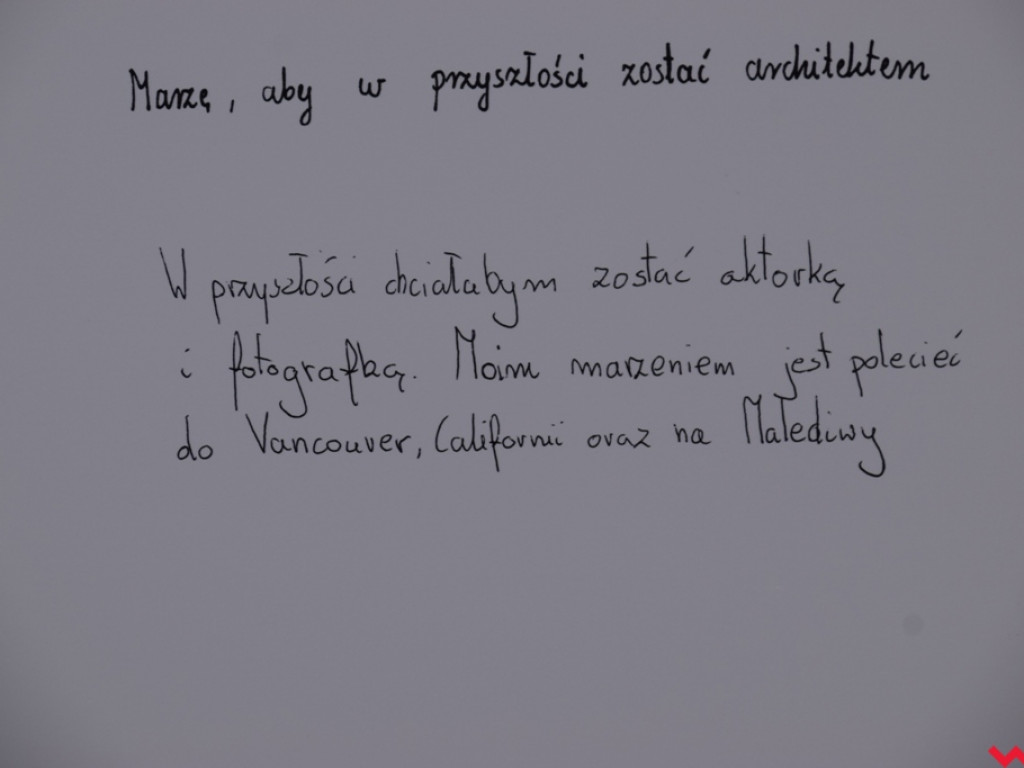 Marzę, aby w przyszłości zostać architektem
W przyszłości chciałabym zostać aktorką
i fotografką. Moim marzeniem jest polecieć
do Vancouver, Californii oraz na Malediwy